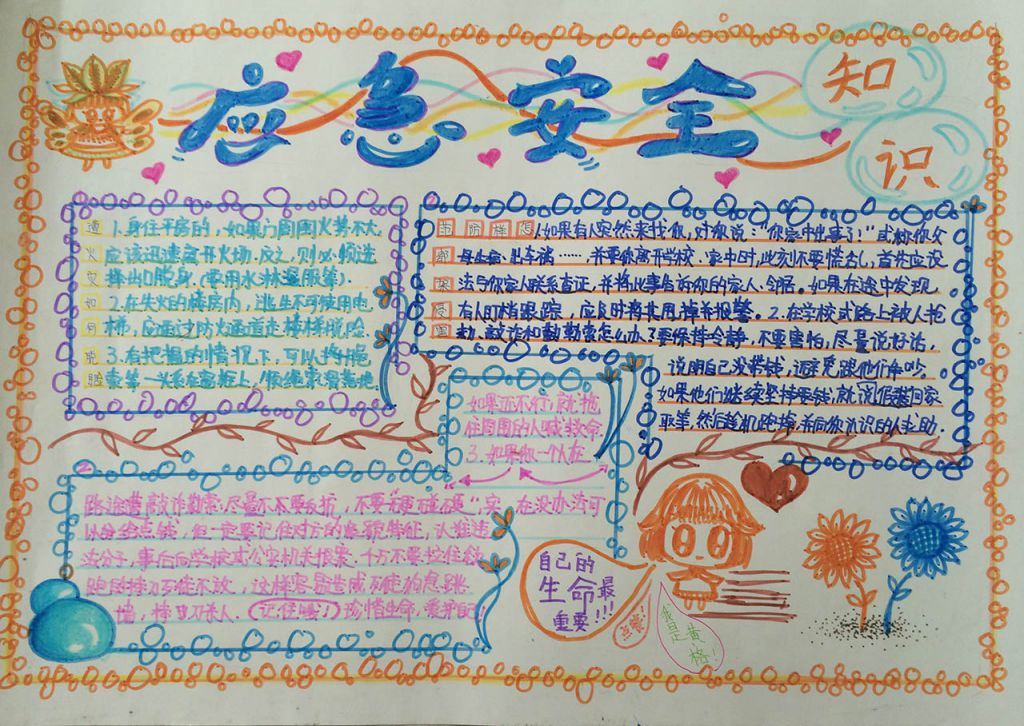 应急安全
知
识
遭 1.身住平房的,如果门周围火势不大,
火 应该迅速离开火场.反之,则必须选
灾 择出口脱身.(要用水淋湿服等).
如 2.在失火的楼房内,逃生不可使用电
何 梯,应通过防火通道走楼梯脱险.
脱 3.有把握的情况下,可以将绳
险 索等一头系在窗框上,顺绳索滑落地
1如果有人突然来找你,对你说:"你家中出事了!"或称你父
母生病、出车祸……并要你离开学校、家中时,此刻不要慌乱,首先应设
法与你家人联系查证,并将此事告诉你的家人、邻居。如果在途中发现
有人盯梢跟踪,应及时将其甩掉并报警。2.在学校或路上被人抢
劫、敲诈和勒索怎么办?要保持冷静,不要害怕,尽量说好话,
说明自己没带钱,
如果他们继续坚持要钱,就说假装回家
取等,然后趁机跑掉,并向你认识的人求助.
如果还不行,就拖
住周围的人喊救命
3.如果你一个人在
路途遭敲诈勒索,尽量不要反抗,不要"硬碰硬"实在没办法可
以分给点钱,但一定要记住对方的象貌特征,认准违
法分子,事后向学校或公安机关报案.千万不要拉住
跑的持刀歹徒不放,这样容易造成歹徒的
墙,持刀杀人.(记住喽!)珍惜生命,爱护自己!
自己的
生命最
重要!!!
我是黄格!